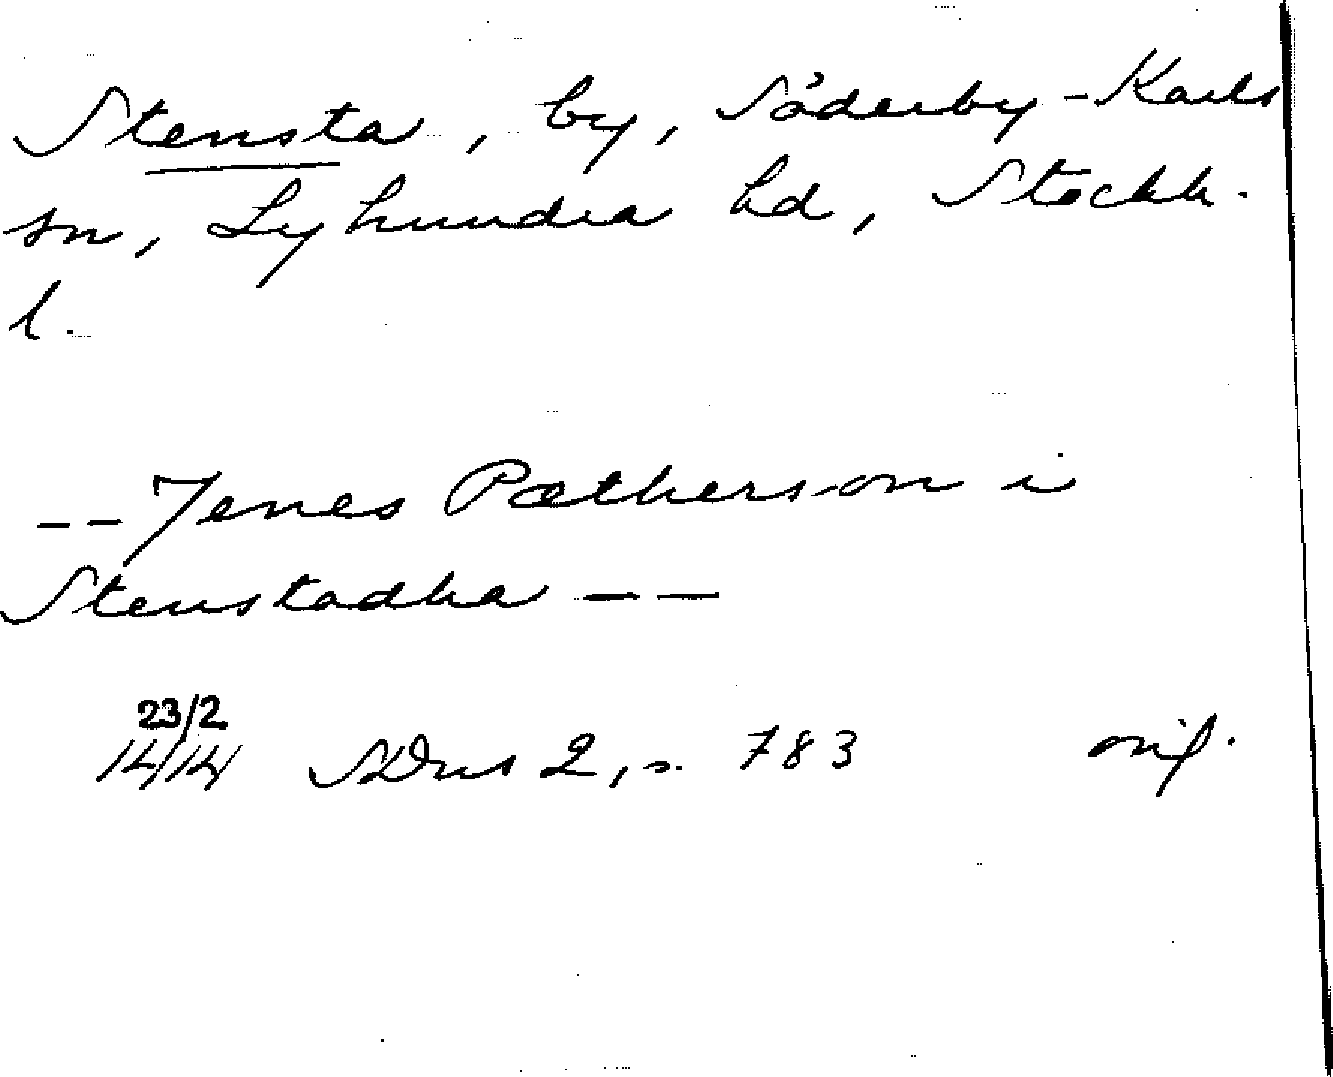 Stensta, by, Söderby-Karls
sn, Lyhundra hd, Stockh.
l.
-- Jenes Pætherson i
Stenstadha --
23/2
1414 SDns 2, s. 783 orig.